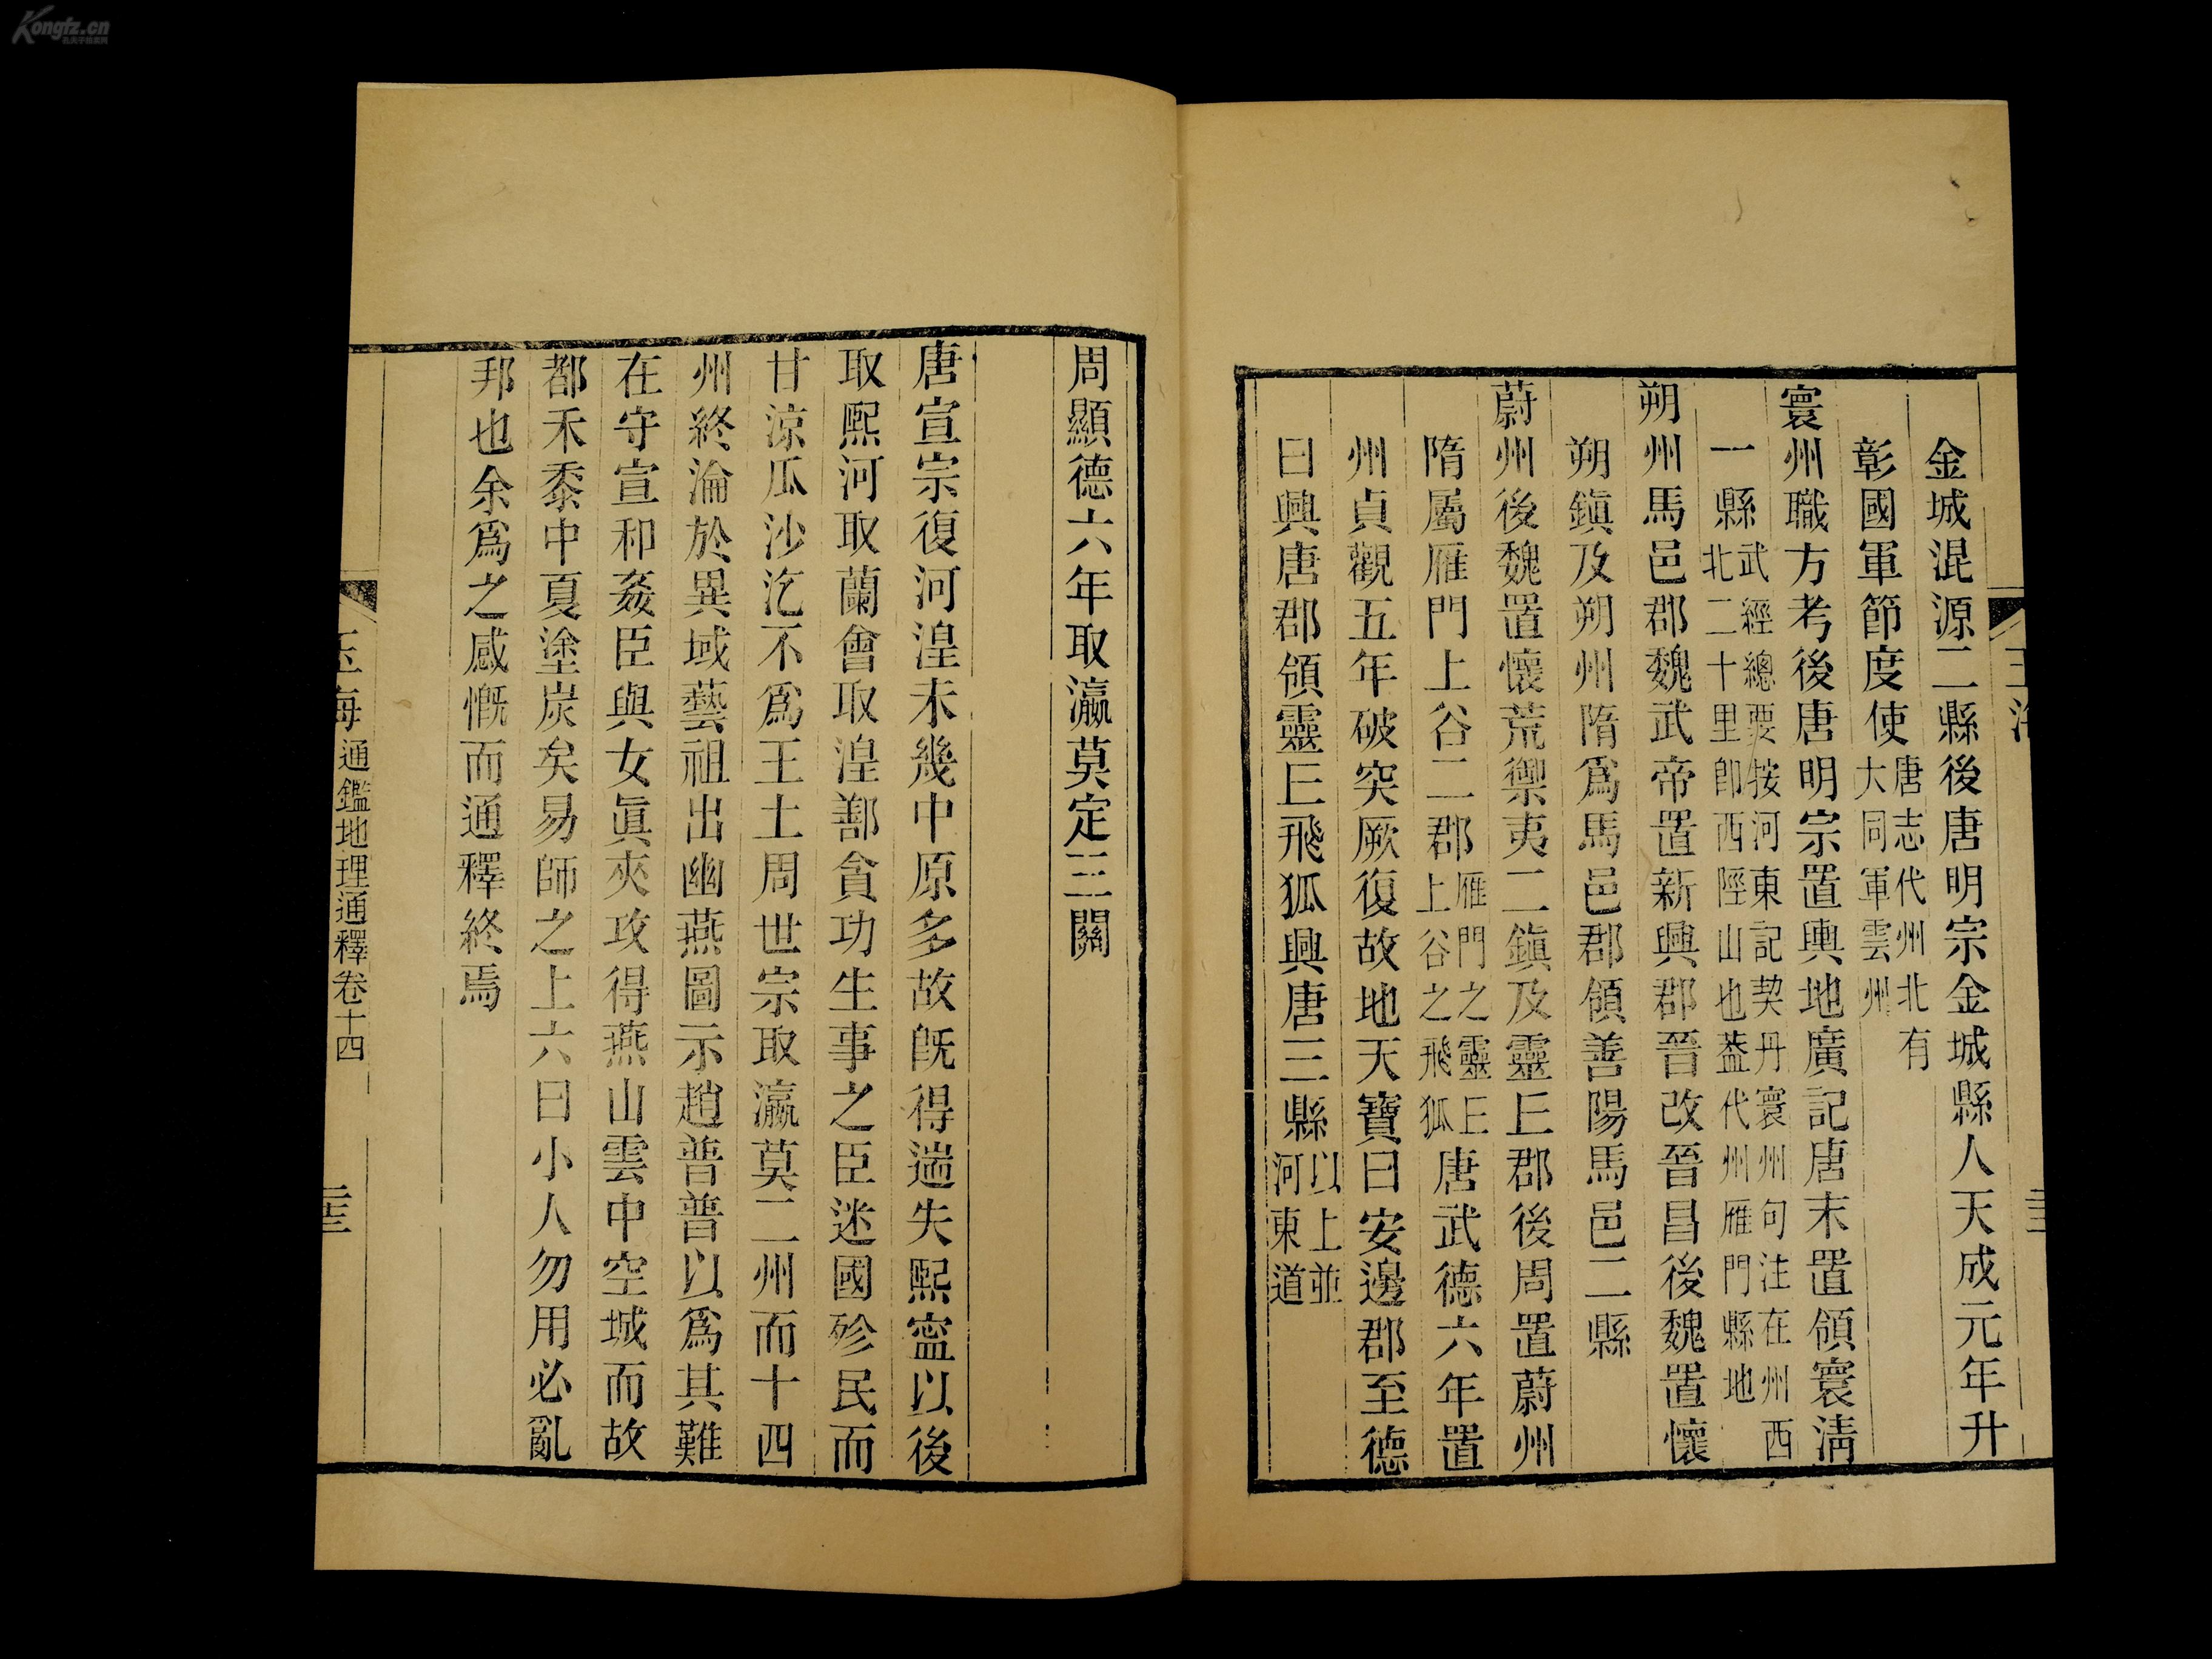 Kongfz.cn
孔夫子旧书网
金城混源二縣後唐明宗金城縣人天成元年升
彰國軍節度使唐志代州北有
大同軍雲州
寰州職方考後唐明宗置輿地廣記唐末置領寰清
一縣武經總要按河東記契丹寰州句注在州西
北二十里卽西陘山也葢代州雁門縣地
朔州馬邑郡魏武帝置新興郡晉改晉昌後魏置懷
朔鎮及朔州隋爲馬邑郡領善陽馬邑二縣
蔚州後魏置懷荒禦夷二鎮及靈丘郡後周置蔚州
隋屬雁門上谷二郡雁門之靈丘
上谷之飛狐唐武德六年置
州貞觀五年破突厥復故地天寶曰安邊郡至德
曰興唐郡領靈丘飛狐興唐三縣以上並
河東道
周顯德六年取瀛莫定三關
唐宣宗復河湟未幾中原多故旣得遄失熙寍以後
取熙河取蘭會取湟鄯貪功生事之臣迷國殄民而
甘涼瓜沙汔不爲王土周世宗取瀛莫二州而十四
州終淪於異域藝祖出幽燕圖示趙普普以爲其難
在守宣和姦臣與女眞夾攻得燕山雲中空城而故
都禾黍中夏塗炭矣易師之上六曰小人勿用必亂
邦也余爲之感慨而通釋終焉
玉海通鑑地理通釋卷十四